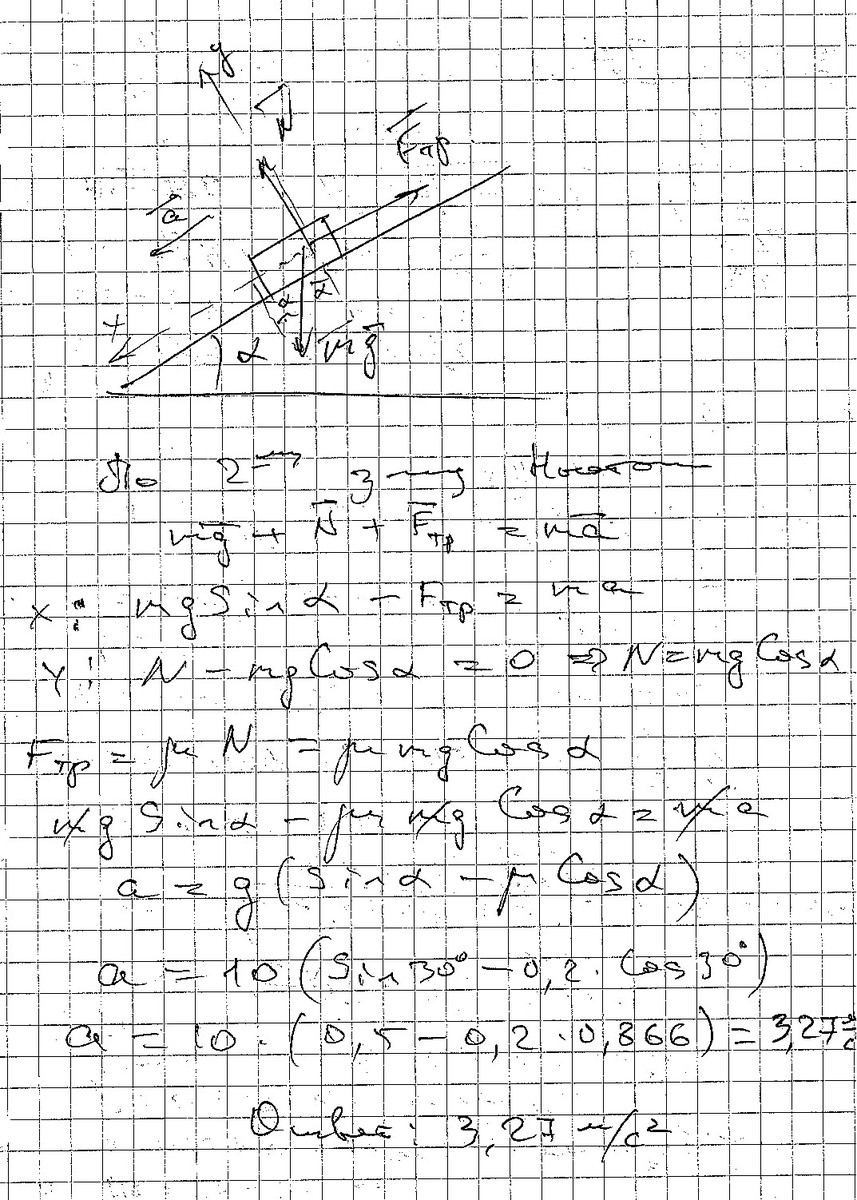 y
N
Fтр
a
α
α
x
α
mg
По 2му закону Ньютона
mg + N + Fтр = ma
x: mg Sinα - Fтр = ma
y: N - mg Cosα = 0 => N = mg Cosα
Fтр = μ N = μ mg Cosα
mg Sinα - μ mg Cosα = ma
a = g (Sinα - μ Cosα)
a = 10 (Sin30° - 0,2 · Cos30°)
a = 10 · (0,5 - 0,2 · 0,866) = 3,27 м/с²
Ответ: 3,27 м/с²